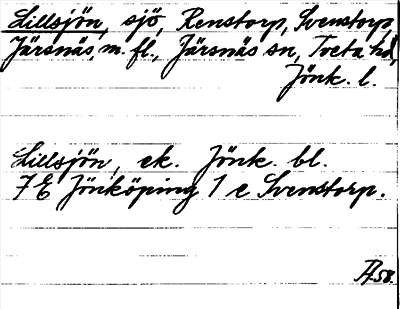 Lillsjön, sjö, Renstorp, Svenstorp,
Järsnäs, m. fl., Järsnäs sn, Tveta hd,
Jönk. l.
Lillsjön, ek. Jönk. bl.
7E Jönköping 1 e Svenstorp.